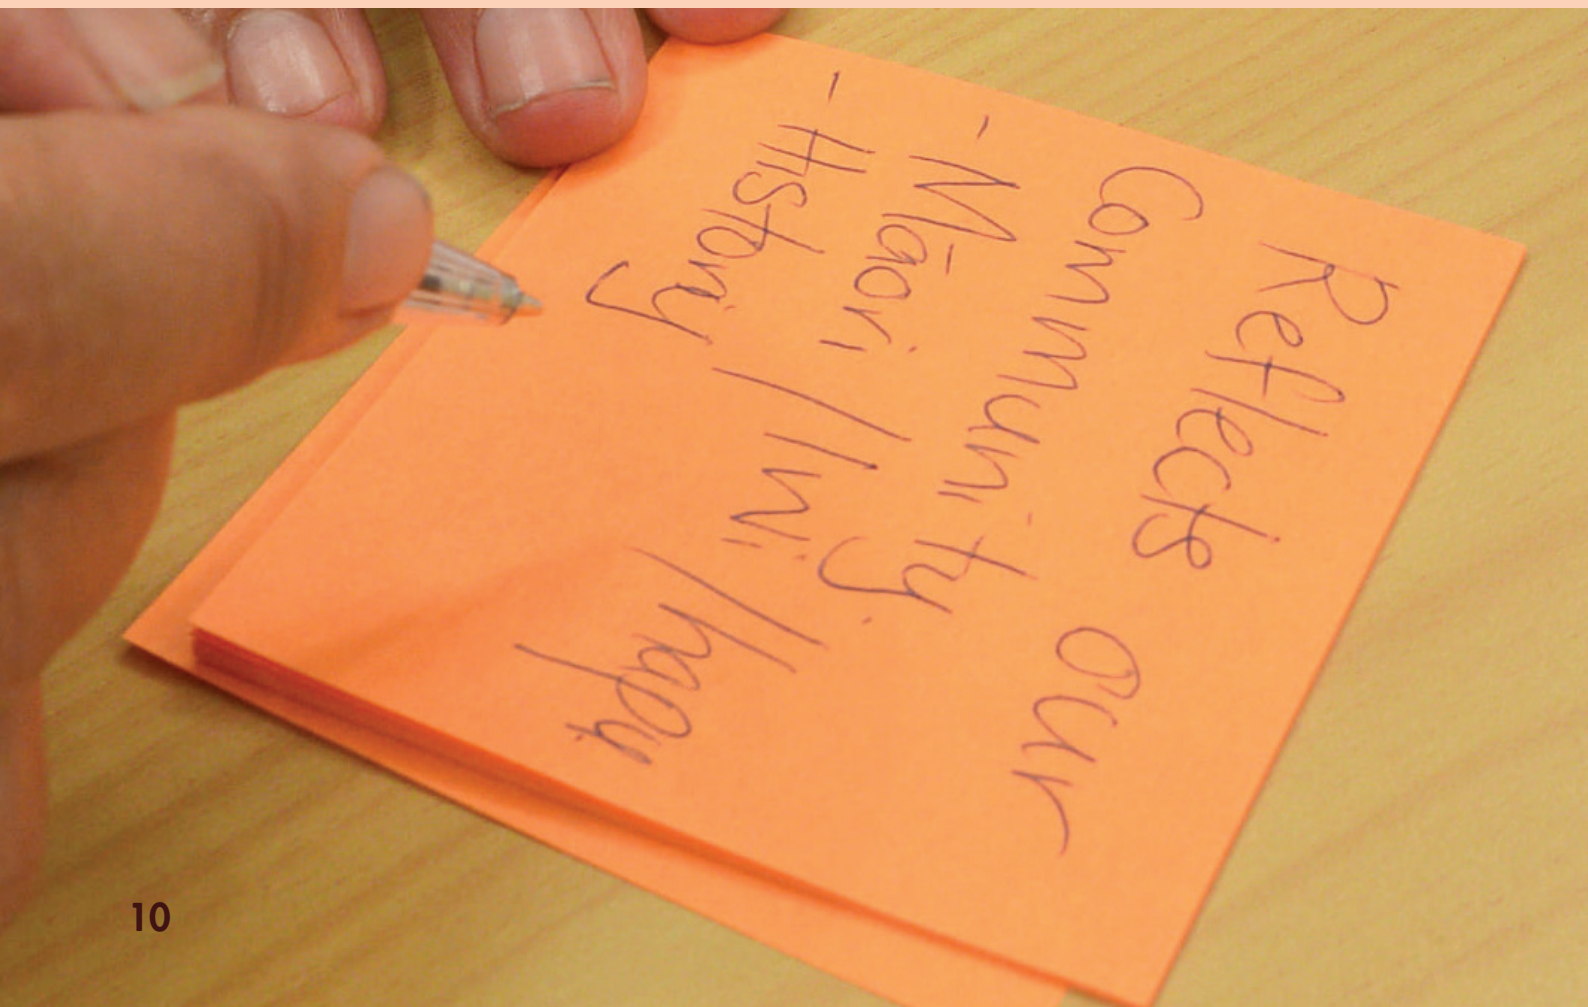 Reflects our
Community
- Māori / Iwi / hapu
- History
10